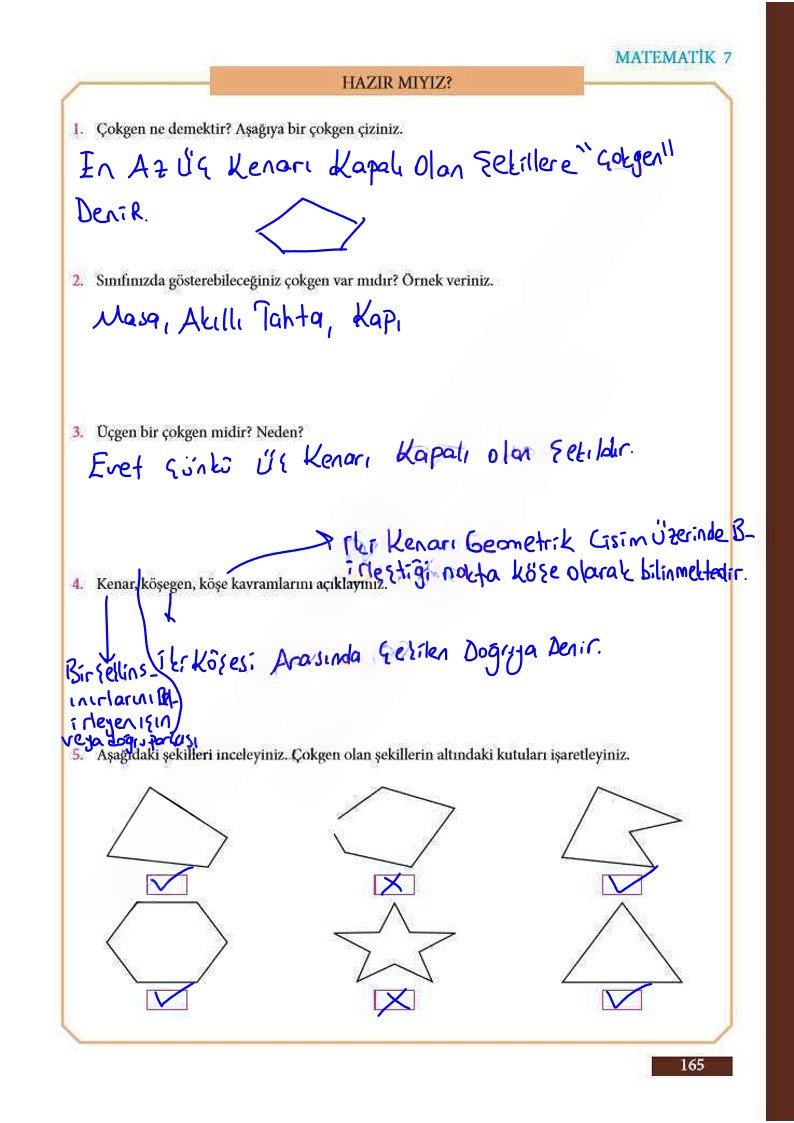 MATEMATİK 7
HAZIR MIYIZ?
1. Çokgen ne demektir? Aşağıya bir çokgen çiziniz.
En Az Üç Kenarı Kapalı Olan Şekillere "Çokgen"
Denir.
2. Sınıfınızda gösterebileceğiniz çokgen var mıdır? Örnek veriniz.
Masa, Akıllı Tahta, Kapı
3. Üçgen bir çokgen midir? Neden?
Evet Çünkü Üç Kenarı Kapalı olan Şekıldır.
İki Kenarı Geometrik Cisim Üzerinde B-
irleştiği nokta köşe olarak bilinmektedir.
4. Kenar, köşegen, köşe kavramlarını açıklayınız.
İki Köşesi Arasında Çekilen Doğruya Denir.
Bir Şeklin s-
ınırlarını Bel-
irleyen ışın
veya doğru parçası
5. Aşağıdaki şekilleri inceleyiniz. Çokgen olan şekillerin altındaki kutuları işaretleyiniz.
165